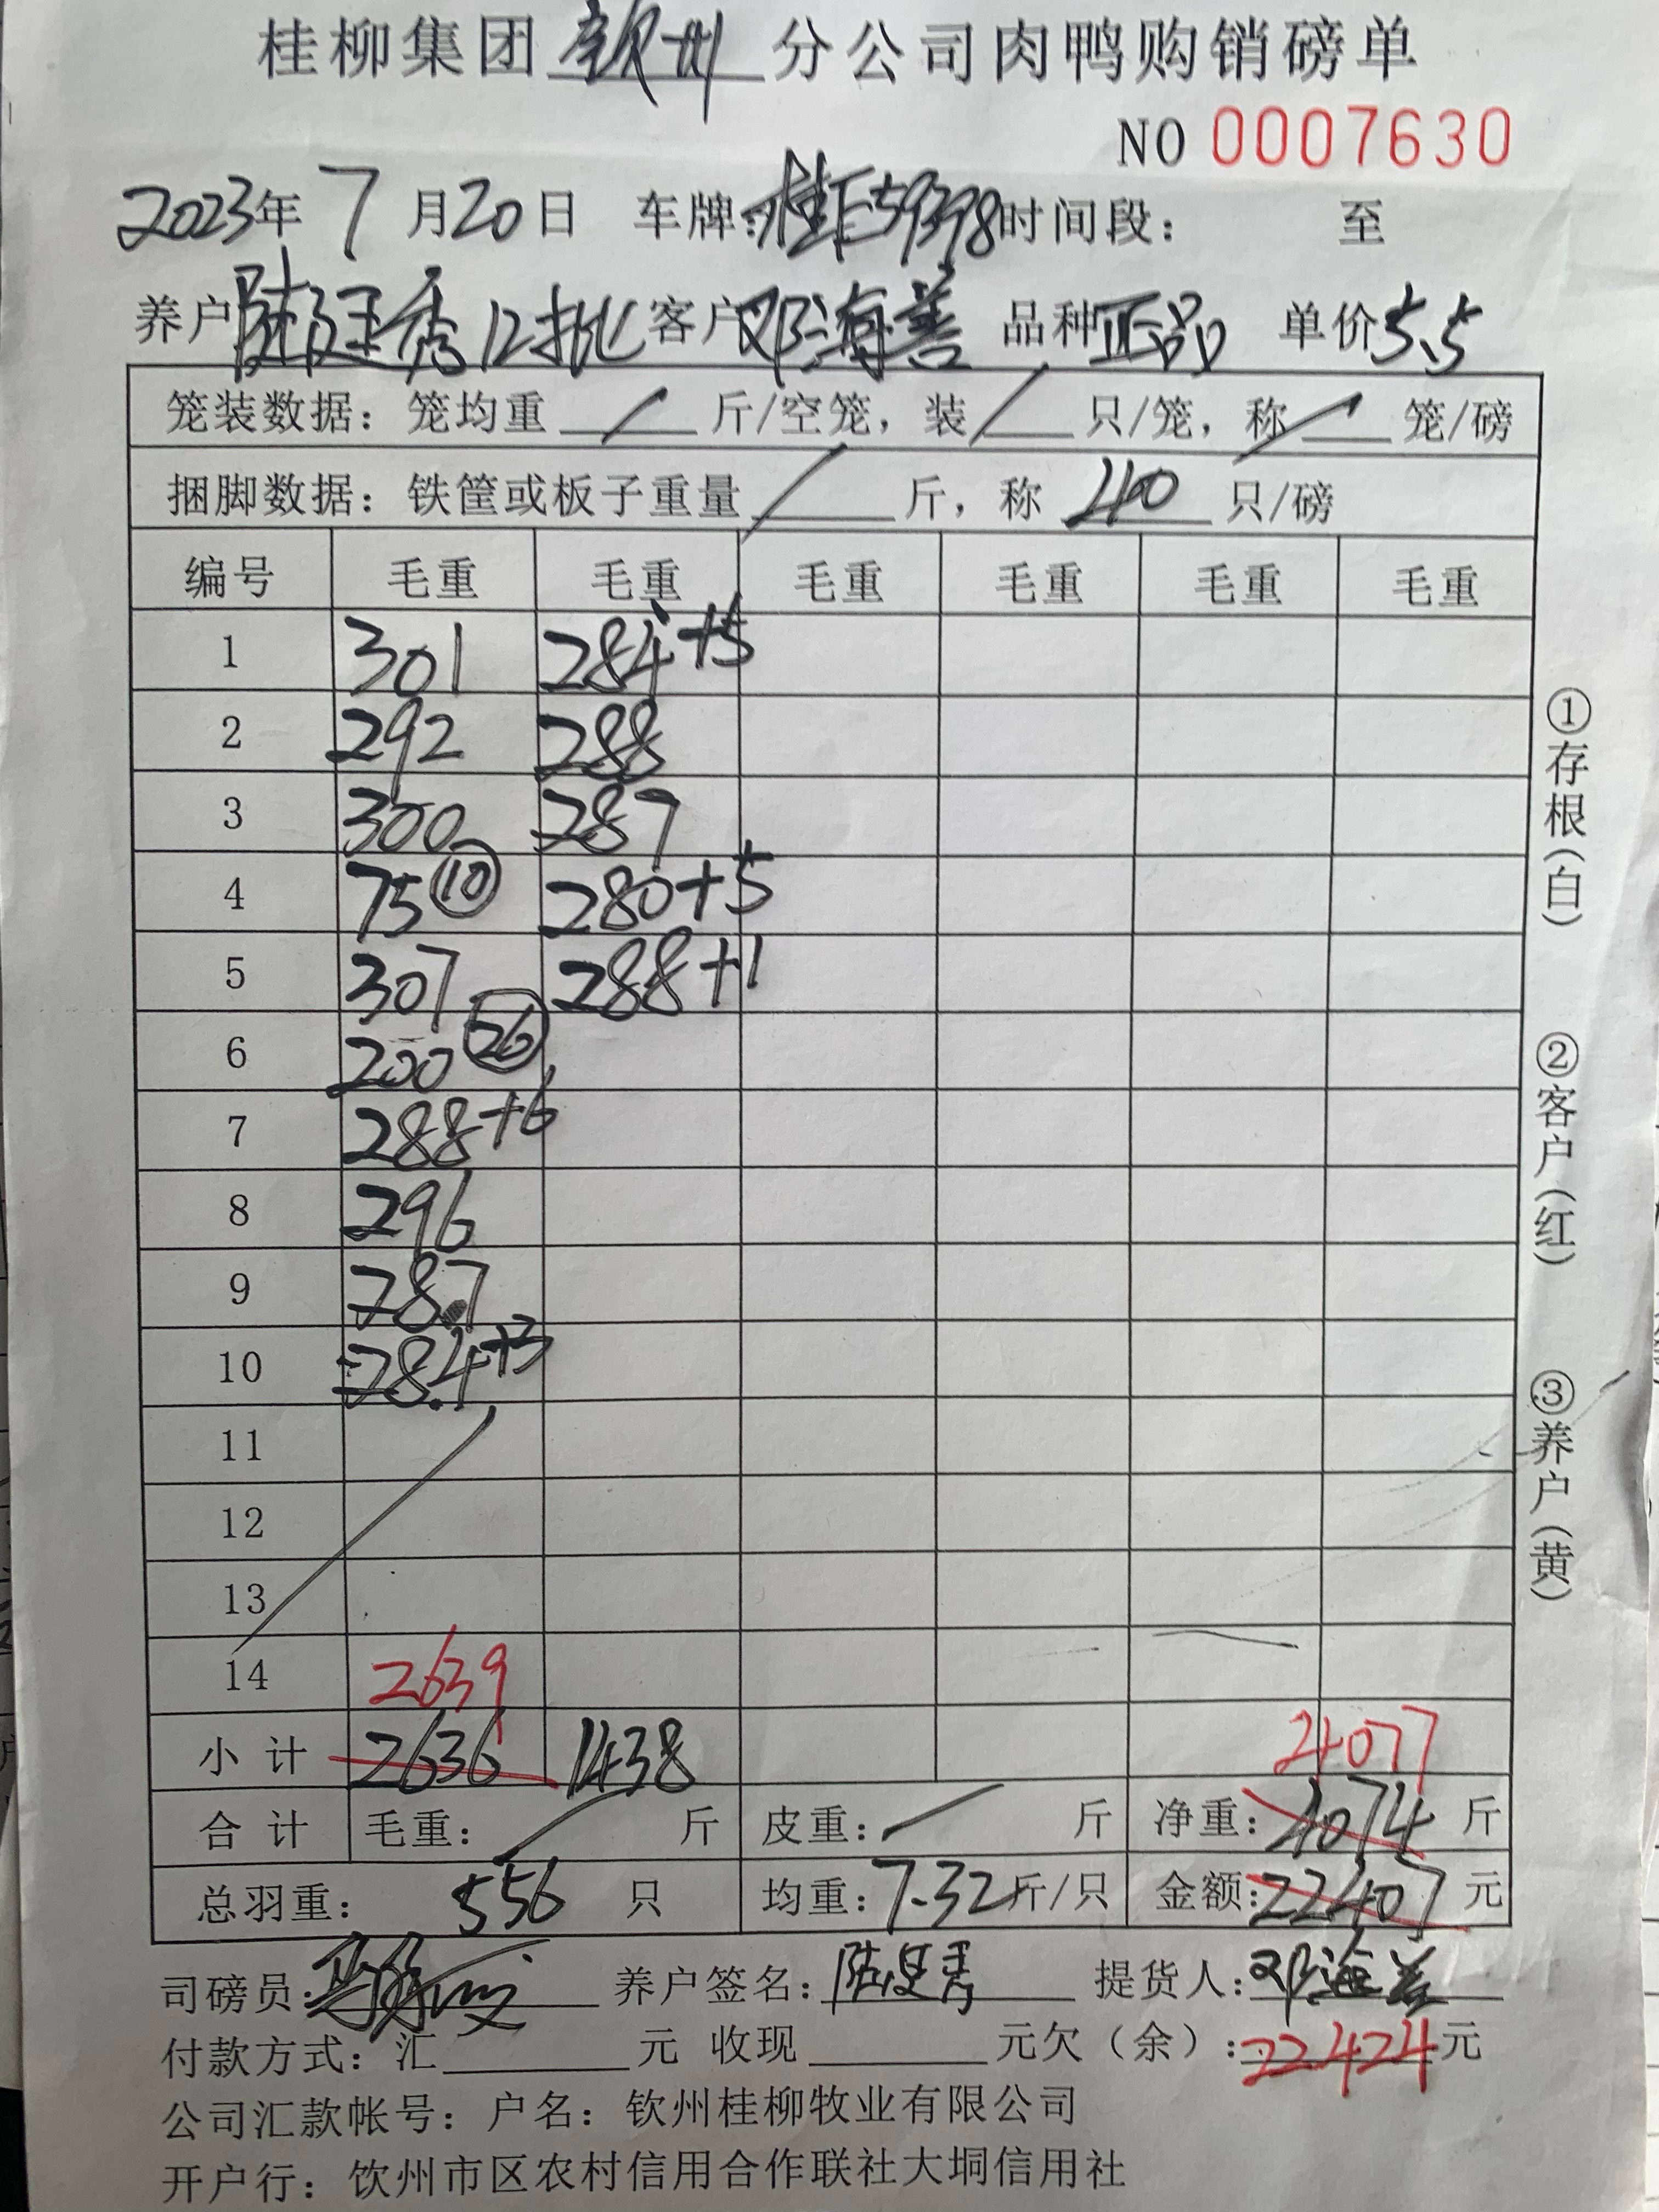 桂柳集团 钦州 分公司肉鸭购销磅单
NO 0007630
2023年 7 月20日 车牌:桂E59398时间段: 至
养户 陆廷秀 12批 客户 邓海善 品种 正品 单价5.5
笼装数据: 笼均重 / 斤/空笼, 装 / 只/笼, 称 / 笼/磅
捆脚数据: 铁筐或板子重量 / 斤, 称 40 只/磅
编号 毛重 毛重 毛重 毛重 毛重 毛重
1 301 284+5
2 292 288
3 300 287
4 75 ⑩ 280+5
5 307 288+1
6 200 ㉖
7 288+6
8 296
9 287
10 284+3
11
12
13
14 2639
小 计 2636 1438 4077
合 计 毛重: / 斤 皮重: / 斤 净重: 4074 斤
总羽重: 556 只 均重: 7.32斤/只 金额:22407 元
司磅员: 养户签名: 陆廷秀 提货人:邓海善
付款方式: 汇 元 收现 元欠(余):22424元
公司汇款帐号: 户名: 钦州桂柳牧业有限公司
开户行: 钦州市区农村信用合作联社大垌信用社
①存根(白)
②客户(红)
③养户(黄)